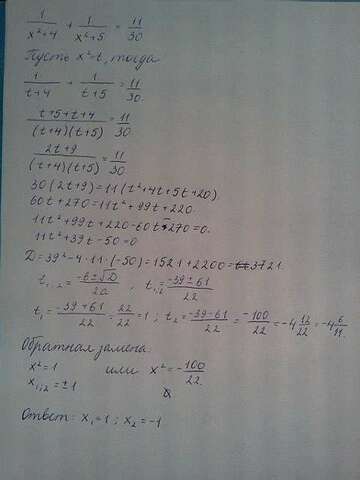 1/(x²+4) + 1/(x²+5) = 11/30
Пусть x²=t, тогда
1/(t+4) + 1/(t+5) = 11/30.
(t+5+t+4)/((t+4)(t+5)) = 11/30
(2t+9)/((t+4)(t+5)) = 11/30
30(2t+9)=11(t²+4t+5t+20).
60t+270=11t²+99t+220.
11t²+99t+220-60t-270=0.
11t²+39t-50=0
D=39²-4·11·(-50)=1521+2200=3721.
t₁,₂=(-b±√D)/2a, t₁,₂=(-39±61)/22
t₁=(-39+61)/22=22/22=1; t₂=(-39-61)/22=-100/22=-4 12/22=-4 6/11.
Обратная замена.
x²=1 или x²=-100/22
x₁,₂=±1
Ответ: x₁=1; x₂=-1